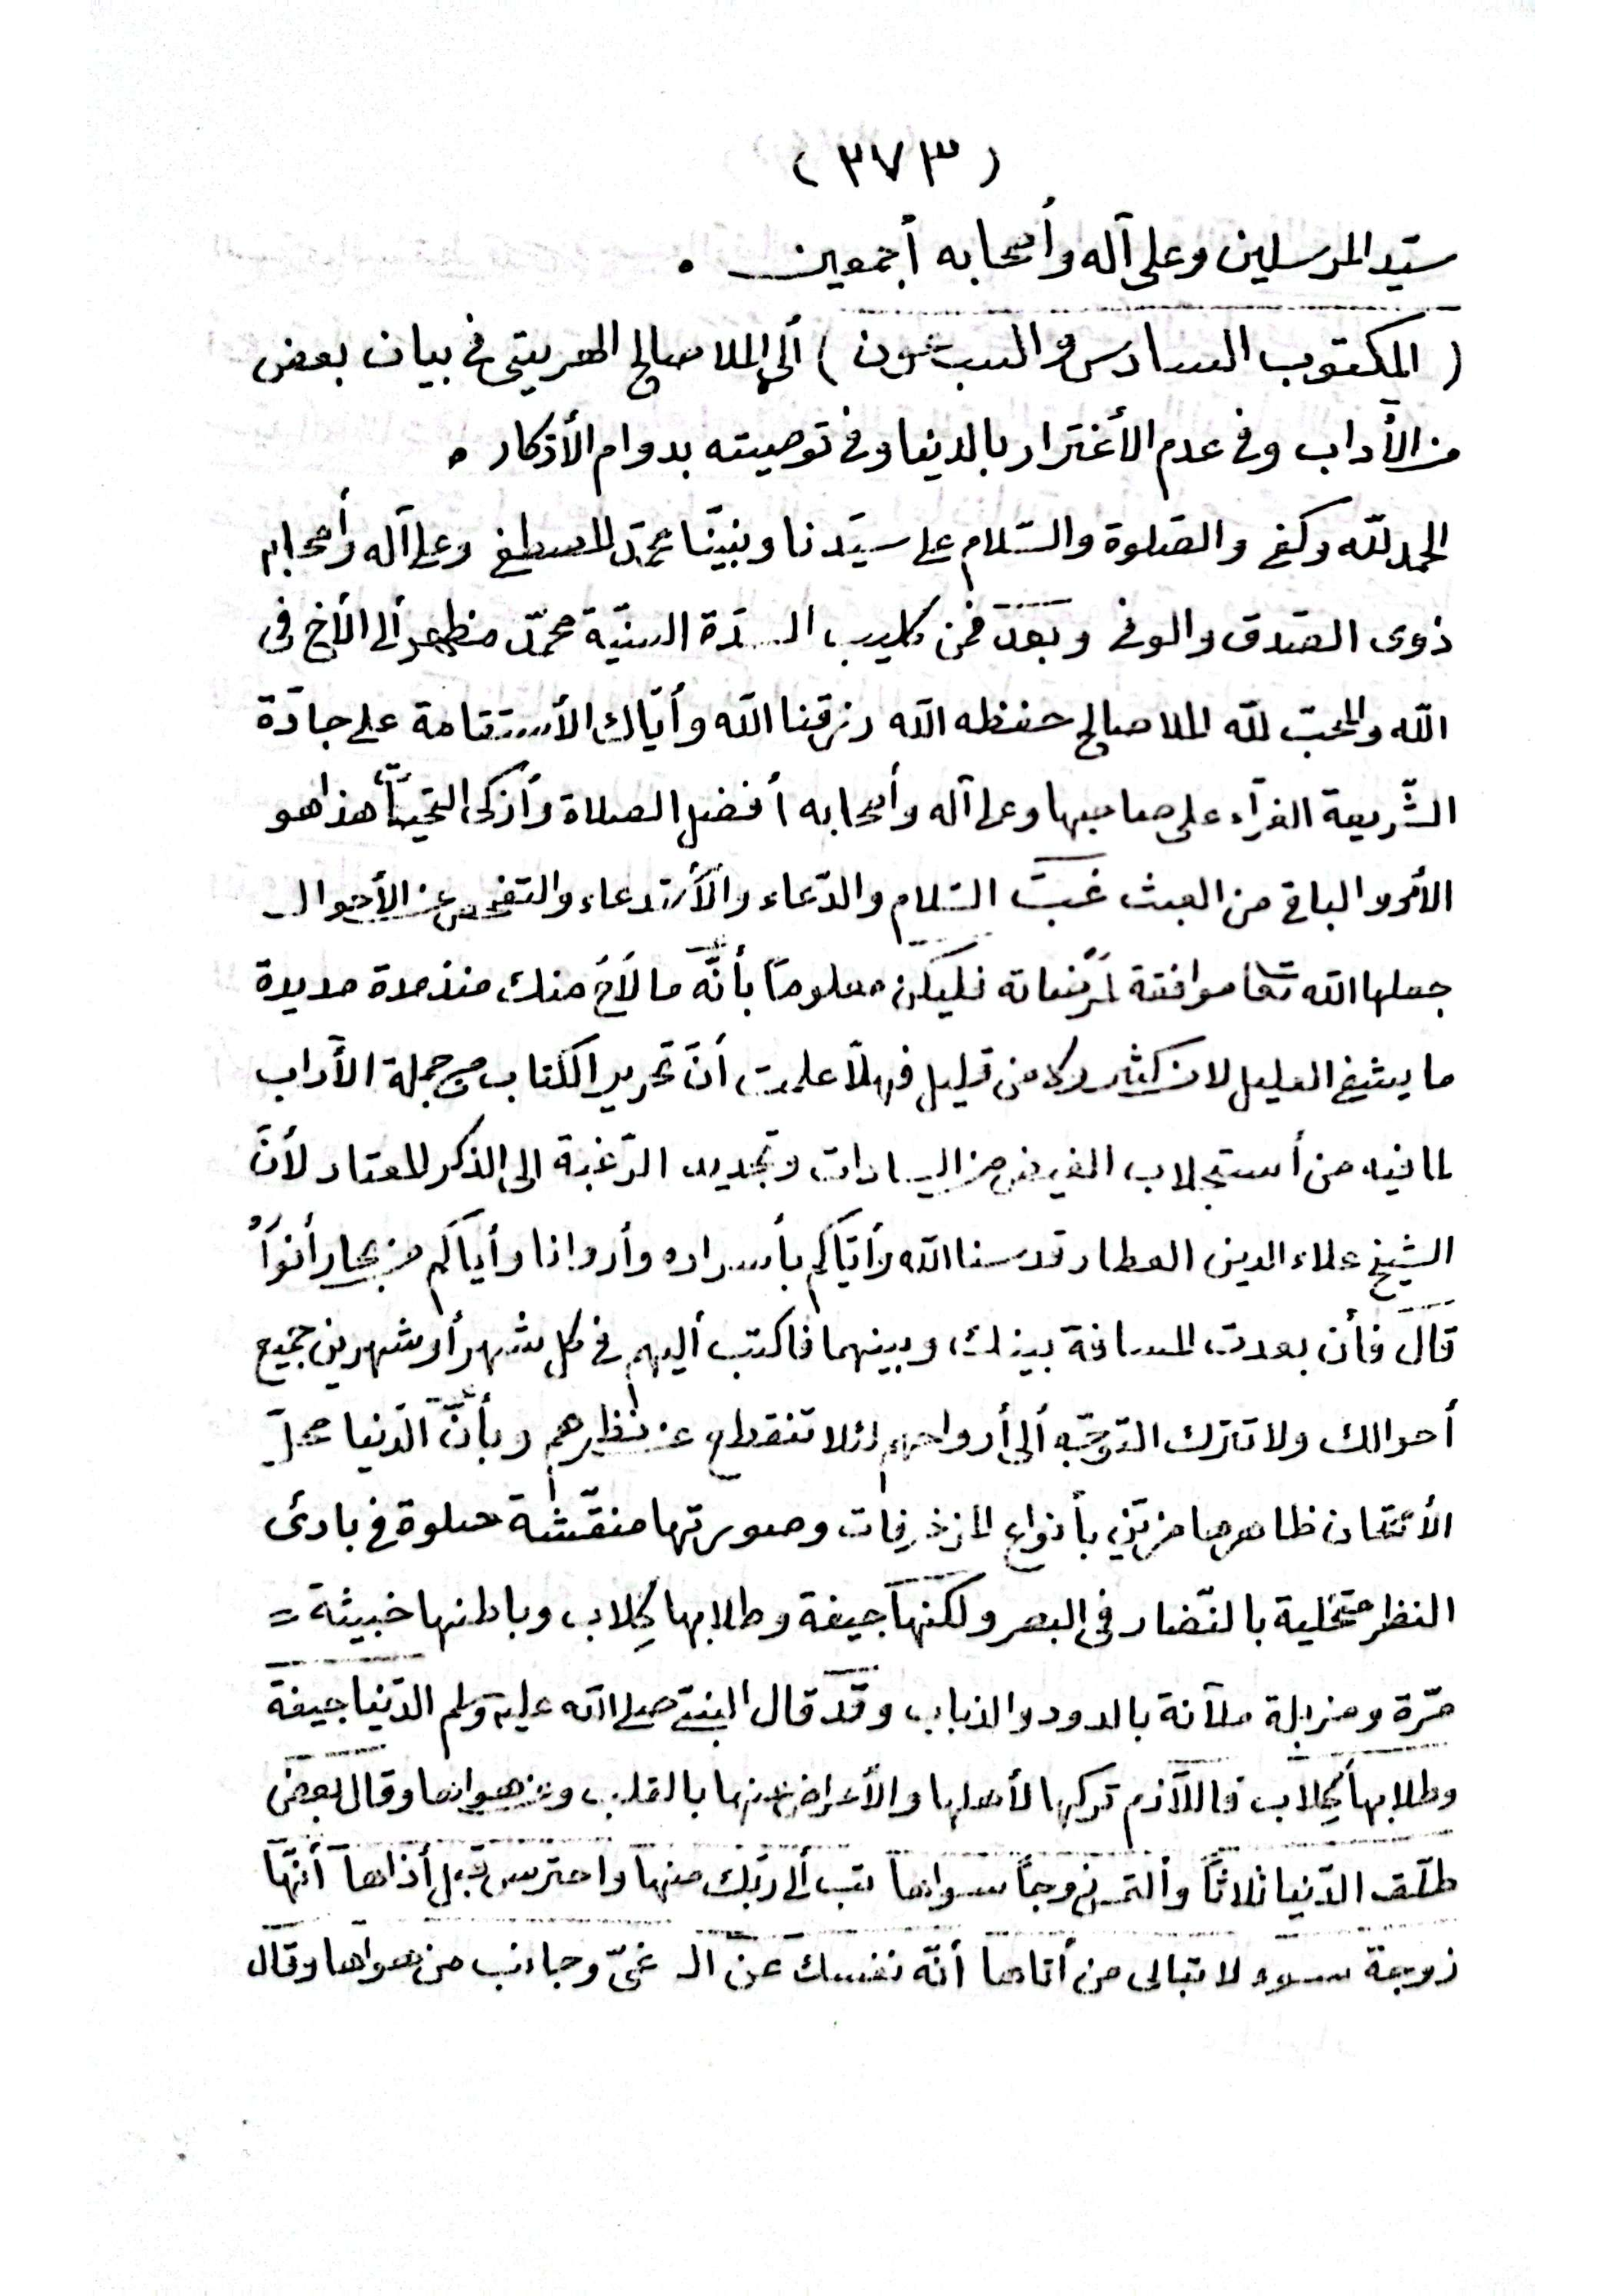 (٣٧٣)
سيّد المرسلين وعلى آله وأصحابه أجمعين .
(المكتوب السادس والسبعون) ألى الملا صالح الهريتى فى بيان بعض
من الأداب وفى عدم الأغترار بالدنيا وفى توصيته بدوام الأذكار .
الحمد لله وكفى والصّلوة والسّلام على سيّدنا ونبيّنا محمّد المصطفى وعلى آله وأصحابه
ذوى الصّدق والوفى وبعد فمن كليب السدّة السنيّة محمّد مظهر ألى الأخ فى
الله والمحبّ لله الملا صالح حفظه الله رزقنا الله وأيّاك الأستقامة على جادّة
الشّريعة الغرّاء على صاحبها وعلى آله وأصحابه أفضل الصلاة وأزكى التحيّات هذا هو
الأمر والباقى من البعث غبّ السّلام والدّعاء والأستدعاء والتفحص عن الأحوال
جعلها الله تعا موافقة لمرضاته فليكن معلوماً بأنّه ما لاح منك منذ مدة مديدة
ما يشفى العليل لا من كثير ولا من قليل فهلّا علمت أنّ تحرير الكتاب من جملة الأداب
لما فيه من أستجلاب الفيض من السادات وتجديد الرّغبة الى الذكر المعتاد لأنّ
الشيخ علاء الدين العطار قدسنا الله وأيّاكم بأسراره وأروانا وأياكم من بحار أنواره
قال فأن بعدت المسافة بينك وبينهما فاكتب أليهم فى كل شهر أو شهرين جميع
أحوالك ولا تترك التوجّه ألى أرواحهم لئلا تنقطع عن نظرهم وبأنّ الدّنيا محلّ
الأمتحان ظاهرها مزيّن بأنواع المزخرفات وصورتها منقّشة حلوة فى بادئ
النظر متحلية بالنّضار فى البصر ولكنها جيفة وطلابها كلاب وباطنها خبيثة =
مرّة ومزبلة ملآنة بالدود والذباب وقد قال النبىّ صلى الله عليه وسلم الدّنيا جيفة
وطلابها كلاب فاللّازم تركها لأهلها والأعراض عنها بالقلب وعن هواها وقال بعض
طلّق الدّنيا ثلاثاً وألتمس زوجاً سواها تب ألى ربّك منها واحترس قبل أذاها أنّها
زوجة سوء لا تبالى من أتاها أنّه نفسك عن الغىّ وجانب من هواها وقال